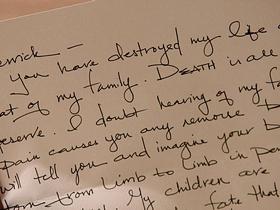 errick –
you have destroyed my life a
of my family. Death is all
at of my family. I doubt hearing of my fa
eserve. I doubt any remorse
pain causes you any remorse
will tell you and imagine your b
torn from limb to limb in pen
My children are
fate that